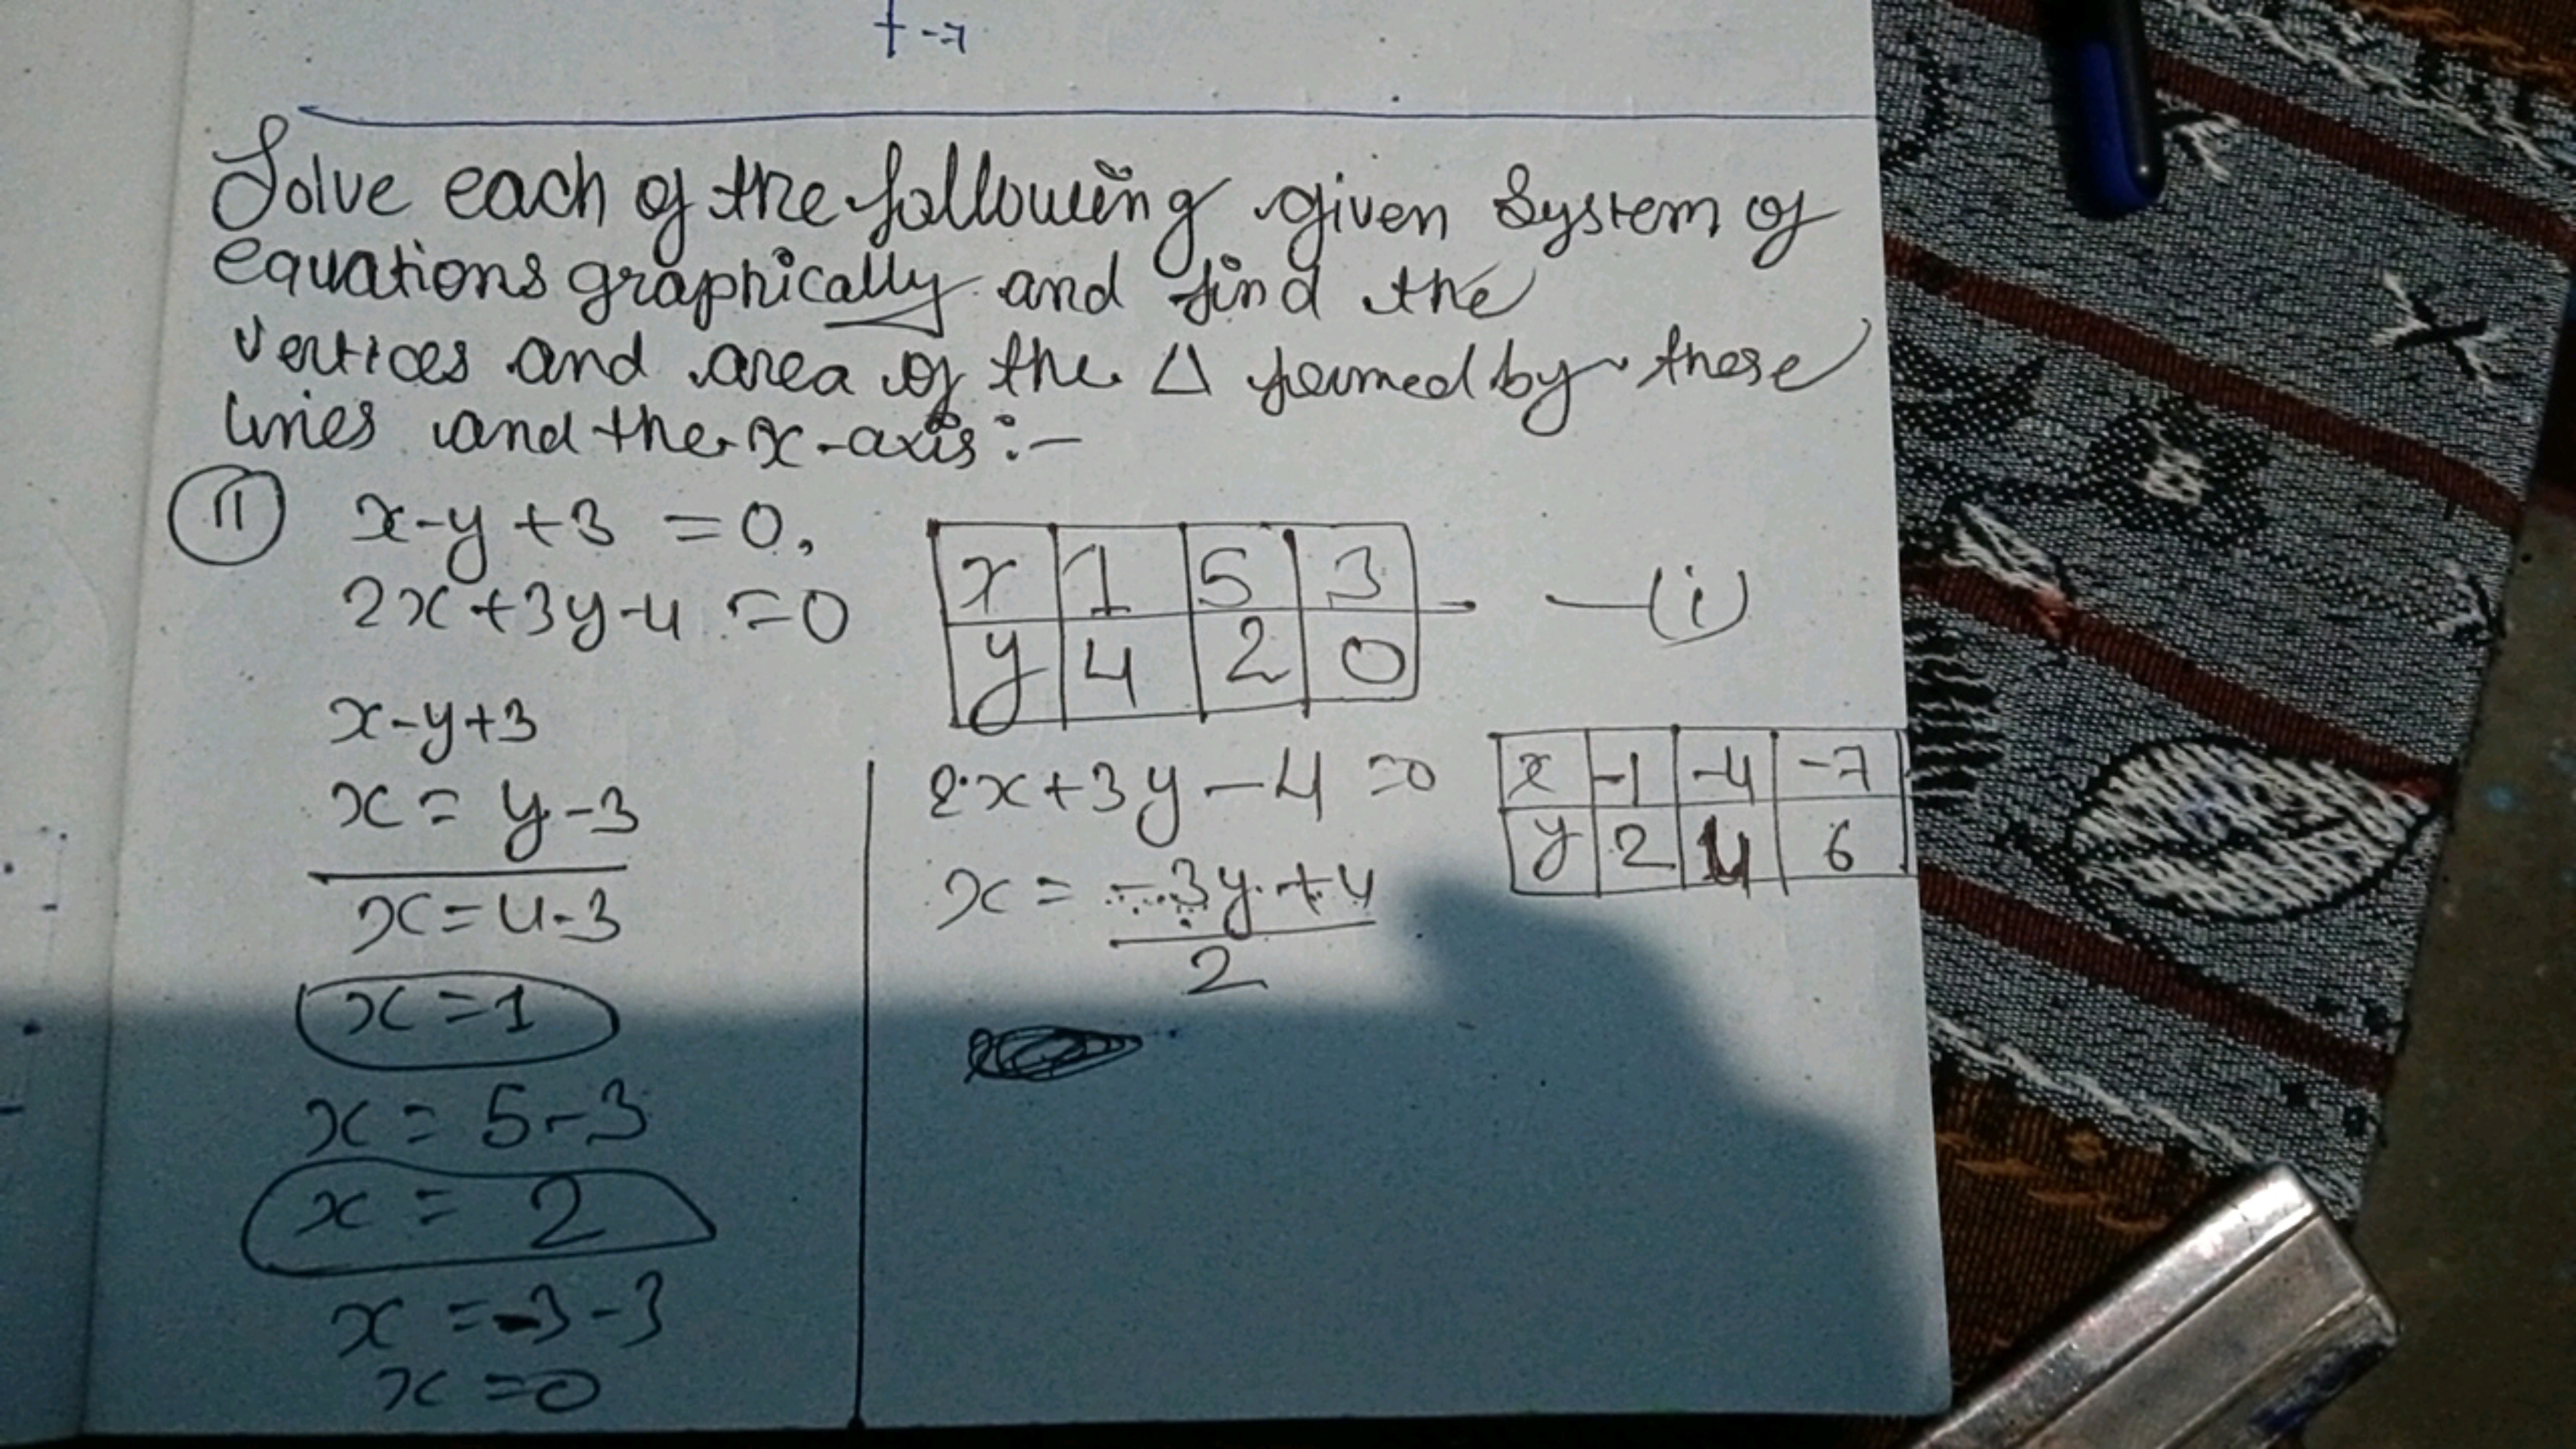 + -7
Solve each of the following given System of
equations graphically and find the
vertices and area of the Δ formed by these
lines and the x-axis :-
(11) x-y+3 = 0,
2x+3y-4 = 0
x 1 5 3 —(i)
y 4 2 0
x-y+3
x = y-3
x = 4-3
x = 1
x = 5-3
x = 2
x = -3-3
x = 0
2x+3y-4 = 0
x = -3y+4
2
x -1 -4 -7
y 2 4 6